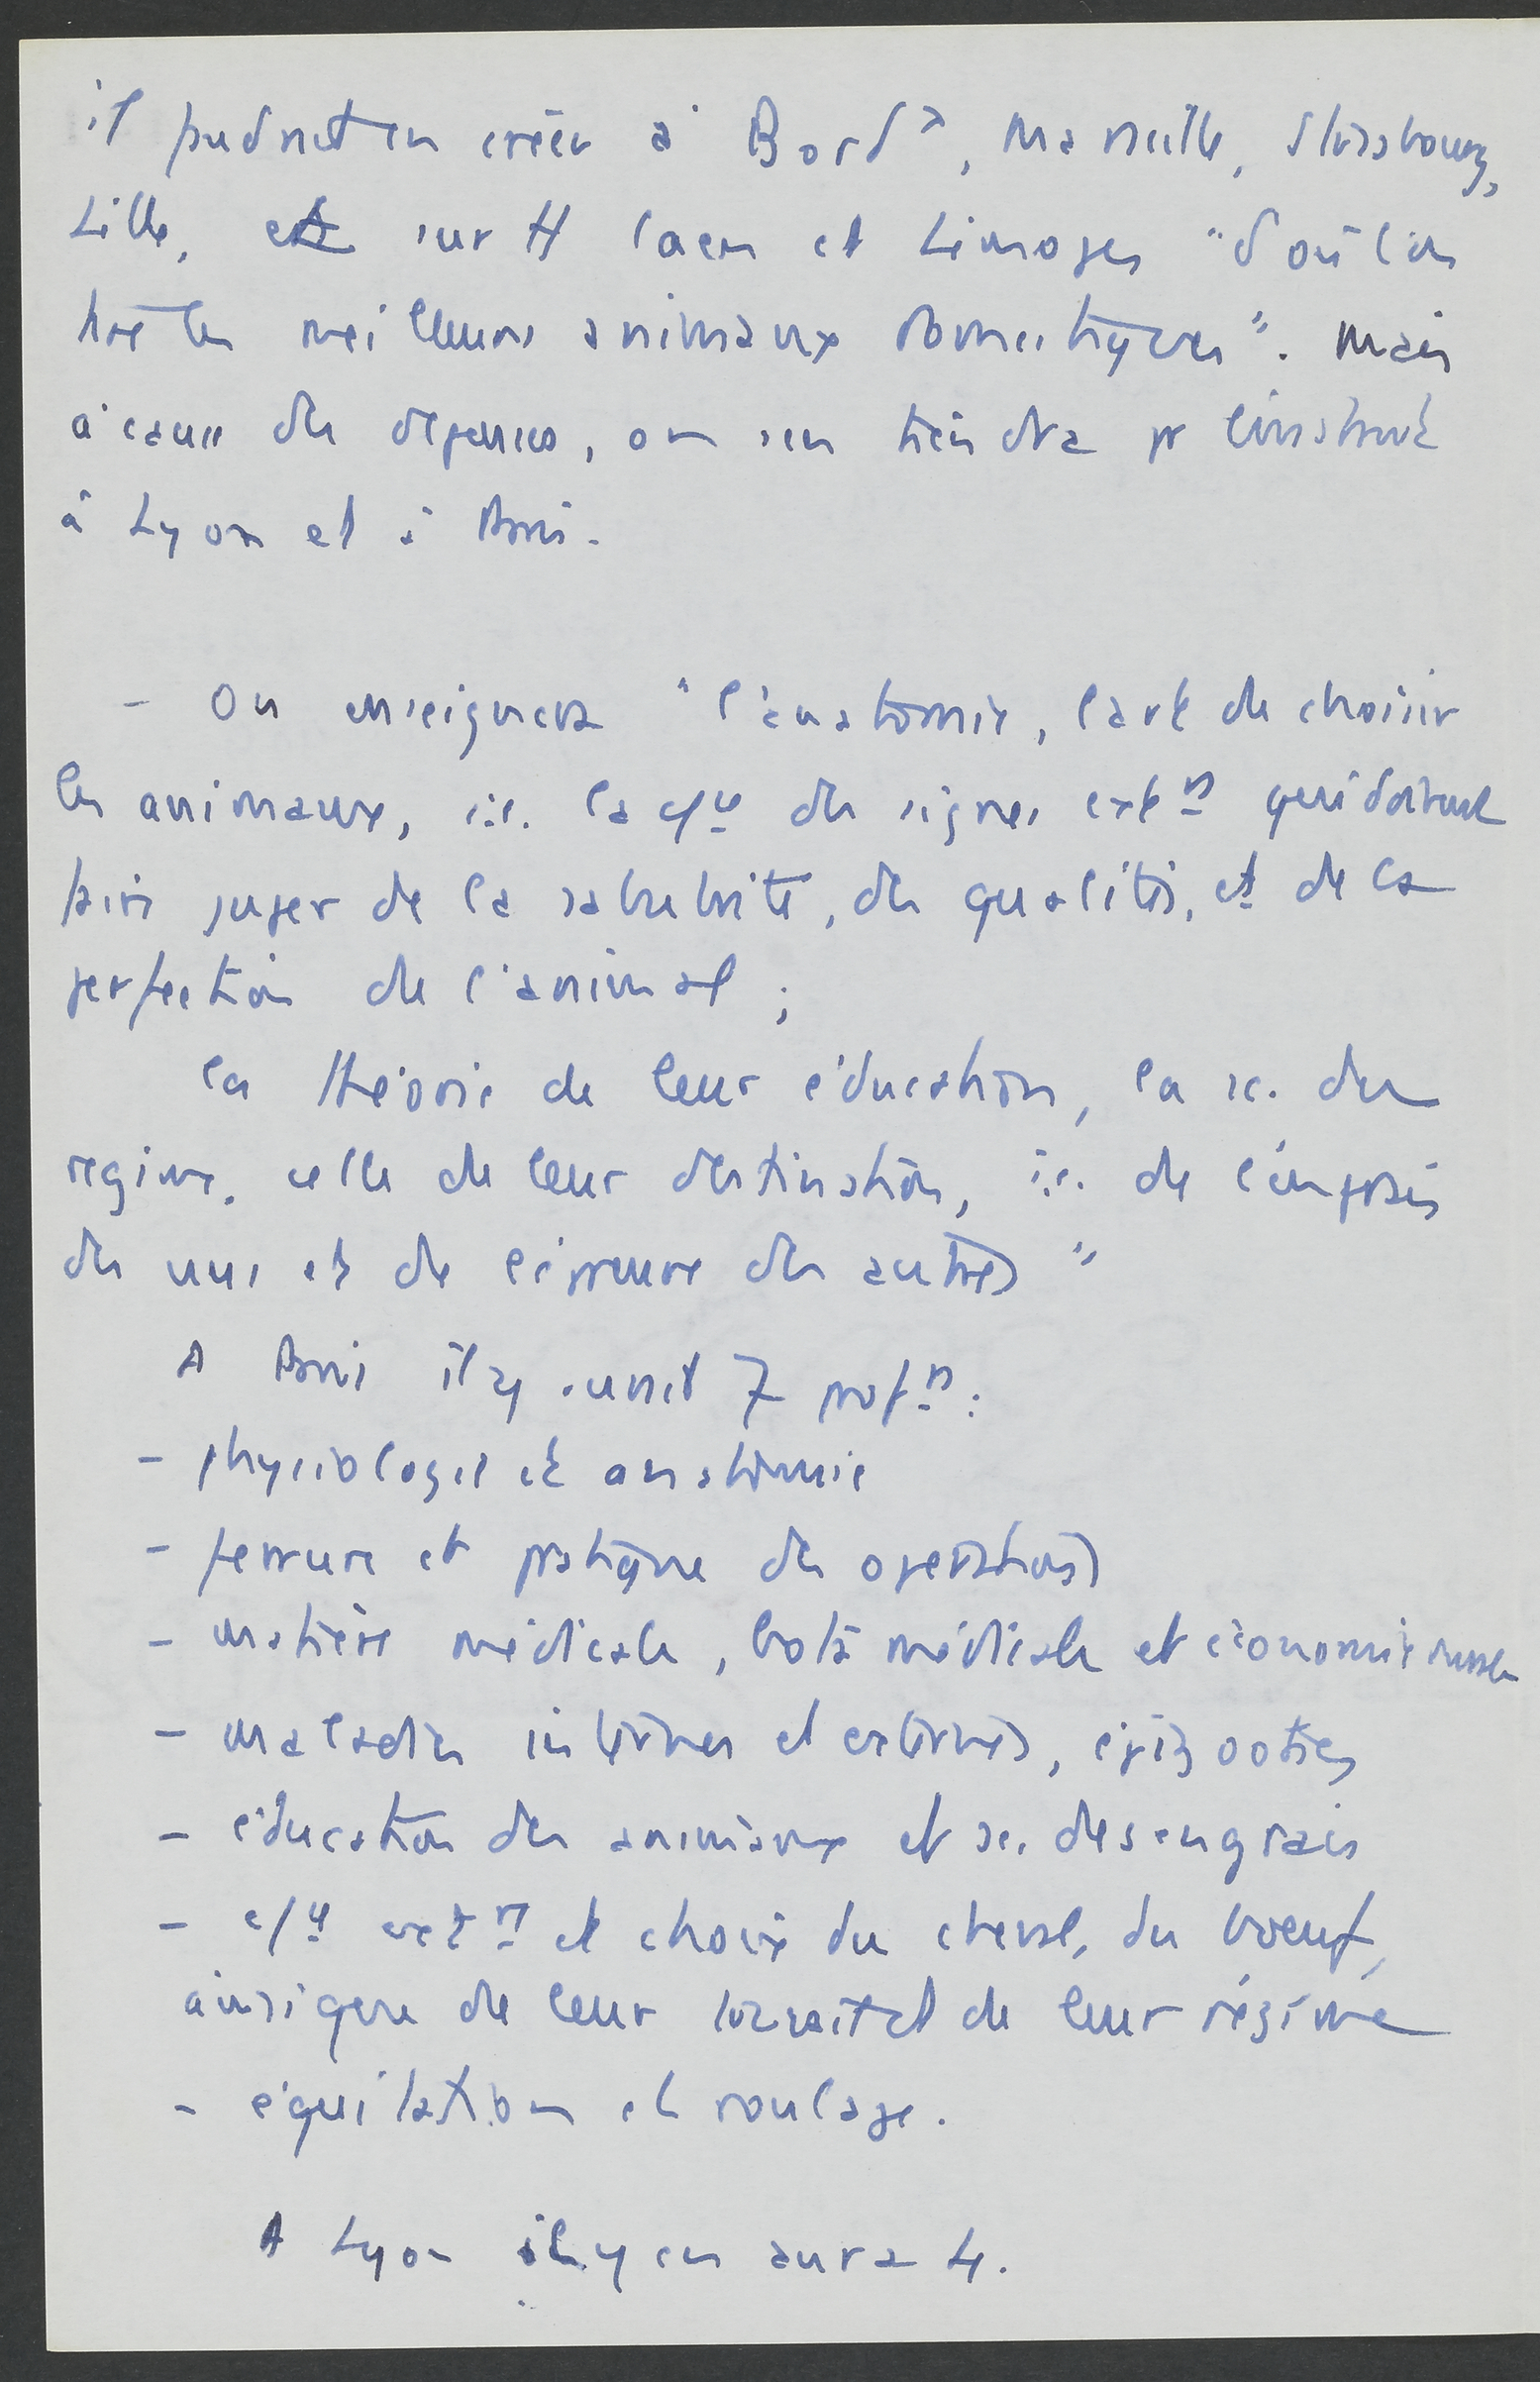 il faudrait en créer à Bordx, Marseille, Strasbourg,
Lille, et sur tt Caen et Limoges "d'où l'on
tire les meilleurs animaux domestiques". Mais
à cause des dépenses, on s'en tiendra pr l'instant
à Lyon et à Paris.
- On enseignera "l'anatomie, l'art de choisir
les animaux, i.e. la ce des signes extrs qui doivent
faire juger de la salubrité, des qualités, et de la
perfection de l'animal ;
la théorie de leur éducation, la sc. du
régime, celle de leur destination, i.e. de l'emploi
des uns et de des autres"
A Paris il y aurait 7 profrs :
- physiologie et anatomie
- ferrure et pratique des opérations
- matière médicale, bota médicale et économie rurale
- maladies internes et externes, épizooties
- éducation des animaux et sc. des engrais
- extre et choix du cheval, du boeuf,
ainsi que de leur et de leur régime
- équitation et roulage.
A Lyon il y en aura 4.